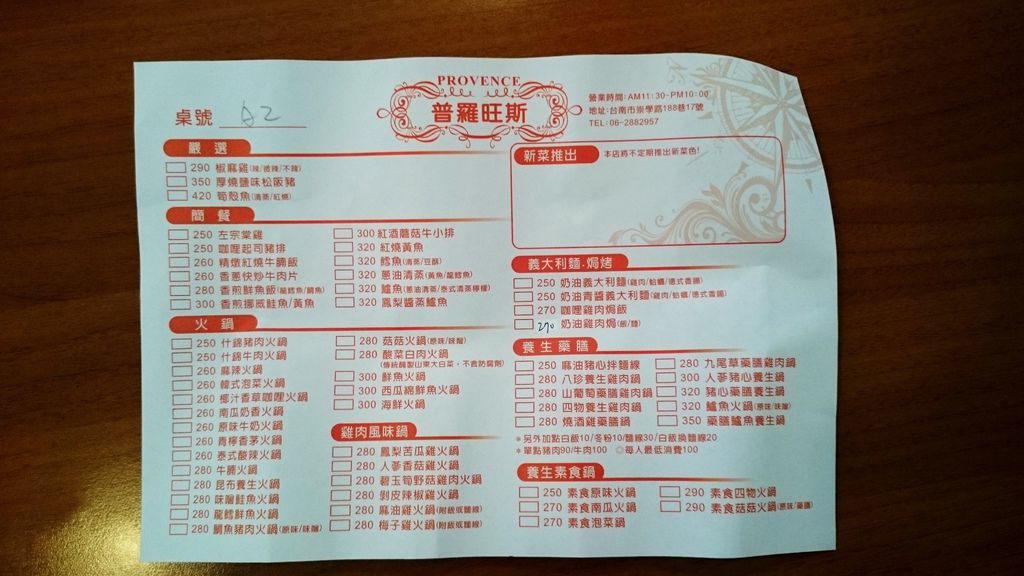 PROVENCE
普羅旺斯
桌號 A2
營業時間:AM11:30-PM10:00
地址:台南市崇學路188巷17號
TEL:06-2882957
嚴選
290 椒麻雞(辣/微辣/不辣)
350 厚燒鹽味松阪豬
420 筍殼魚(清蒸/紅燒)
簡餐
250 左宗棠雞
250 咖哩起司豬排
260 精燉紅燒牛腩飯
260 香蔥快炒牛肉片
280 香煎鮮魚飯(龍鱈魚/鯛魚)
300 香煎挪威鮭魚/黃魚
300 紅酒蘑菇牛小排
320 紅燒黃魚
320 鱈魚(清蒸/豆酥)
320 蔥油清蒸(黃魚/龍鱈魚)
320 鱸魚(蔥油清蒸/泰式清蒸檸檬)
320 鳳梨醬蒸鱸魚
火鍋
250 什錦豬肉火鍋
250 什錦牛肉火鍋
260 麻辣火鍋
260 韓式泡菜火鍋
260 椰汁香草咖哩火鍋
260 南瓜奶香火鍋
260 原味牛奶火鍋
260 青檸香茅火鍋
260 泰式酸辣火鍋
280 牛腩火鍋
280 昆布養生火鍋
280 味噌鮭魚火鍋
280 龍鱈鮮魚火鍋
280 鯛魚豬肉火鍋(原味/味噌)
280 菇菇火鍋(原味/味噌)
280 酸菜白肉火鍋
(傳統醃製山東大白菜，不含防腐劑)
300 鮮魚火鍋
300 西瓜綿鮮魚火鍋
300 海鮮火鍋
雞肉風味鍋
280 鳳梨苦瓜雞火鍋
280 人蔘香菇雞火鍋
280 碧玉筍野菇雞肉火鍋
280 剝皮辣椒雞火鍋
280 麻油雞火鍋(附飯或麵線)
280 梅子雞火鍋(附飯或麵線)
新菜推出 本店將不定期推出新菜色!
義大利麵.焗烤
250 奶油義大利麵(雞肉/蛤蠣/德式香腸)
250 奶油青醬義大利麵(雞肉/蛤蠣/德式香腸)
270 咖哩雞肉焗飯
270 奶油雞肉焗(飯/麵)
養生藥膳
250 麻油豬心拌麵線
280 八珍養生雞肉鍋
280 山葡萄藥膳雞肉鍋
280 四物養生雞肉鍋
280 燒酒雞藥膳鍋
280 九尾草藥膳雞肉鍋
300 人蔘豬心養生鍋
320 豬心藥膳養生鍋
320 鱸魚火鍋(原味/味噌)
350 藥膳鱸魚養生鍋
*另外加點白飯10/冬粉10/麵線30/白飯換麵線20
*單點豬肉90/牛肉100 ◎每人最低消費100
養生素食鍋
250 素食原味火鍋
270 素食南瓜火鍋
270 素食泡菜鍋
290 素食四物火鍋
290 素食菇菇火鍋(原味/藥膳)